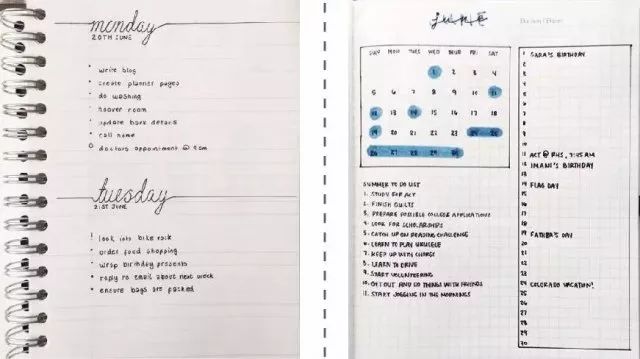 monday
20TH JUNE
write blog
create planner pages
do washing
hoover room
update bank details
call home
doctors appointment @ 9am
tuesday
21ST JUNE
! look into bike rack
order food shopping
wrap birthday presents
reply to email about next week
ensure bags are packed
JUNE
SUN MON TUE WED THUR FRI SAT
1 2 3 4
5 6 7 8 9 10 11
12 13 14 15 16 17 18
19 20 21 22 23 24 25
26 27 28 29 30
SUMMER TO DO LIST
1. STUDY FOR ACT
2. FINISH QUILTS
3. PREPARE POSSIBLE COLLEGE APPLICATIONS
4. LOOK FOR SCHOLARSHIPS
5. CATCH UP ON READING CHALLENGE
6. LEARN TO PLAY UKULELE
7. KEEP UP WITH
8. LEARN TO DRIVE
9. START VOLUNTEERING
10. GET OUT AND DO THINGS WITH FRIENDS
11. START JOGGING IN THE MORNINGS
1 SARA'S BIRTHDAY
2
3
4
5
6
7
8
9
10
11 ACT @ RHS, 7:45 AM
12 IMANI'S BIRTHDAY
13
14 FLAG DAY
15
16
17
18
19 FATHER'S DAY
20
21
22
23
24 COLORADO VACATION!
25
26
27
28
29
30